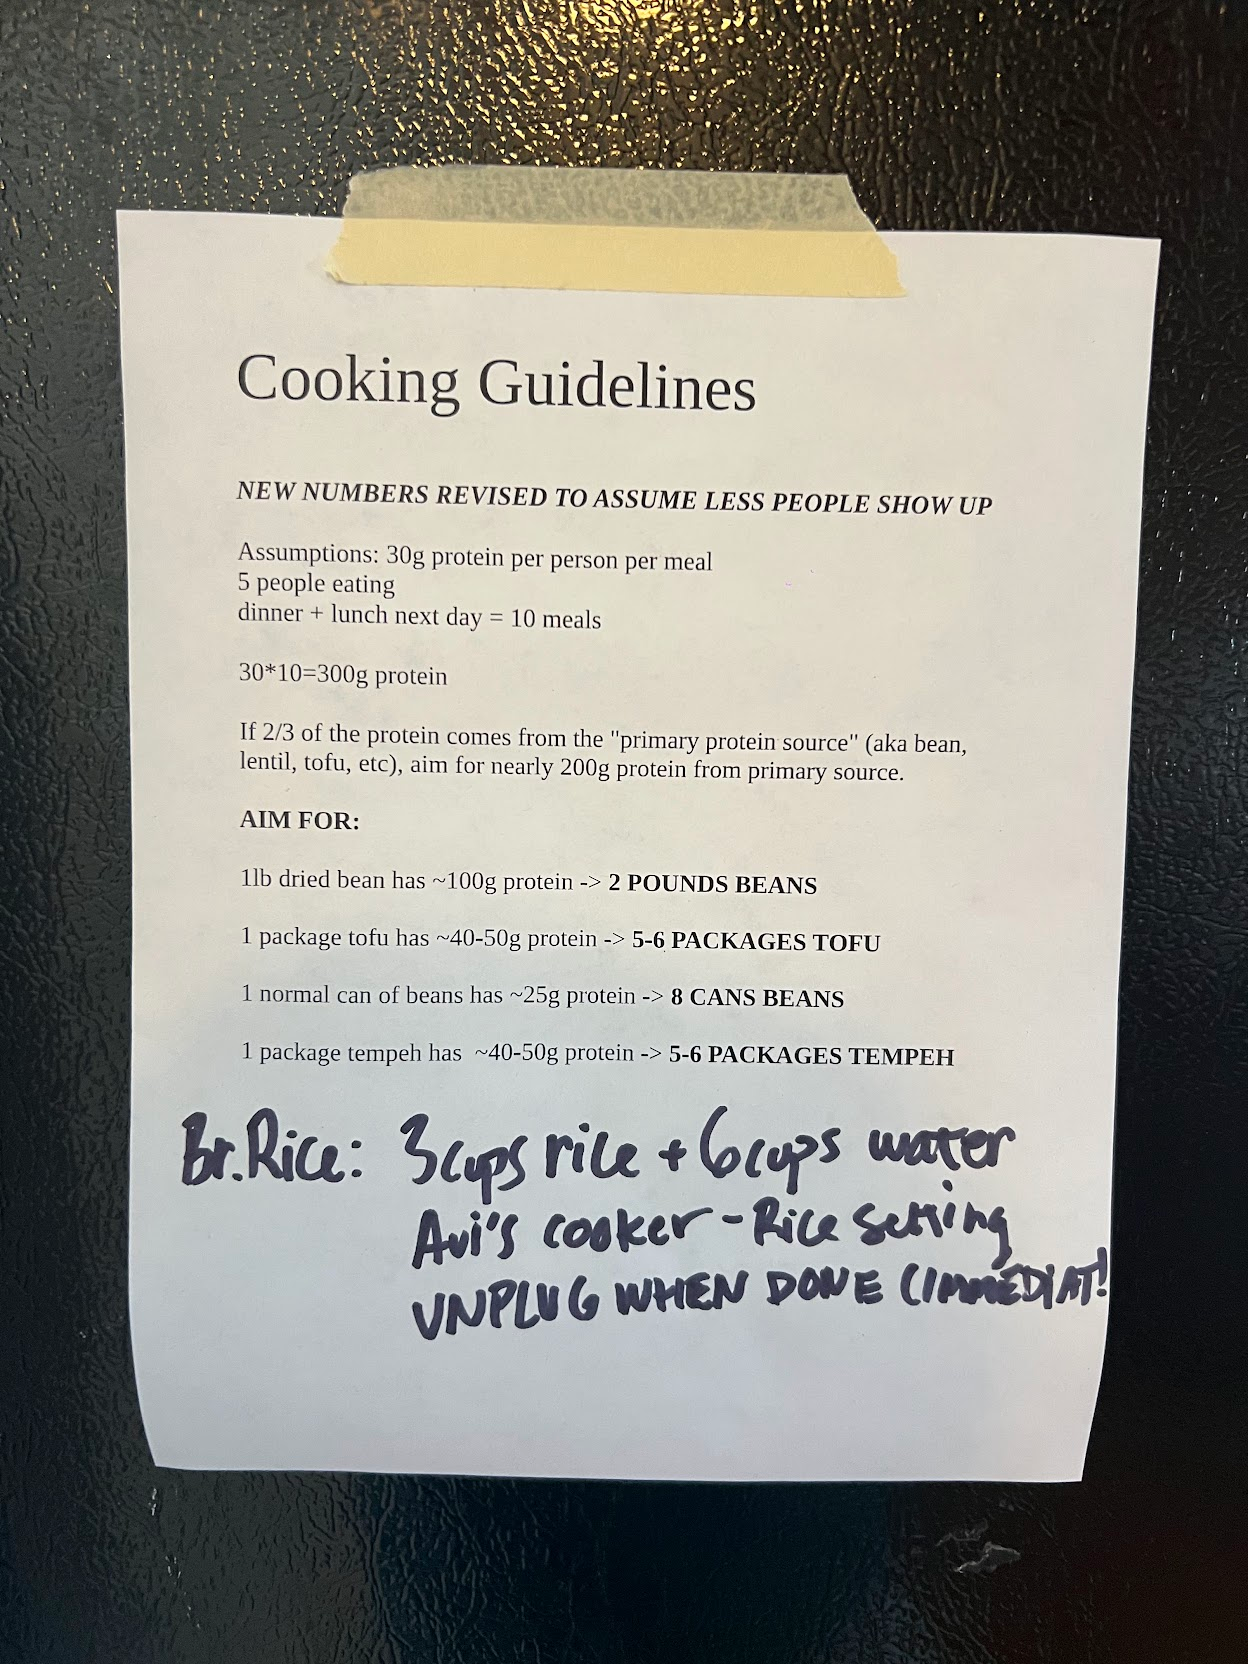 Cooking Guidelines
NEW NUMBERS REVISED TO ASSUME LESS PEOPLE SHOW UP
Assumptions: 30g protein per person per meal
5 people eating
dinner + lunch next day = 10 meals
30*10=300g protein
If 2/3 of the protein comes from the "primary protein source" (aka bean,
lentil, tofu, etc), aim for nearly 200g protein from primary source.
AIM FOR:
1lb dried bean has ~100g protein -> 2 POUNDS BEANS
1 package tofu has ~40-50g protein -> 5-6 PACKAGES TOFU
1 normal can of beans has ~25g protein -> 8 CANS BEANS
1 package tempeh has  ~40-50g protein -> 5-6 PACKAGES TEMPEH
Br. Rice: 3 cups rice + 6 cups water
Avi's cooker - Rice Setting
UNPLUG WHEN DONE (IMMEDIAT!